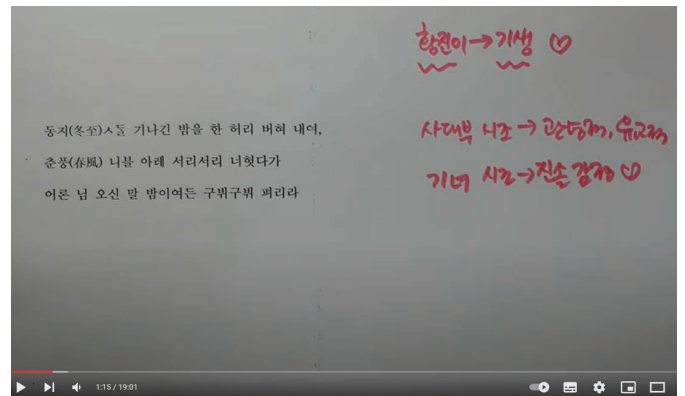 황진이→기생 ♡
동지(冬至)ㅅᄃᆞᆯ 기나긴 밤을 한 허리 버혀 내여,
춘풍(春風) 니블 아레 서리서리 너헛다가
어론 님 오신 말 밤이여든 구뷔구뷔 펴리라
사대부 시조→관념적, 유교적
기녀 시조→진솔 감정 ♡
1:15 / 19:01